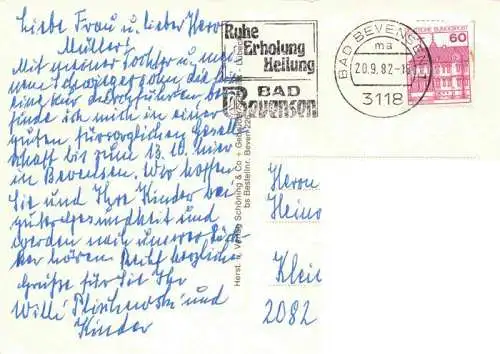 Liebe Frau u. lieber Herr
Müller!
Mit meiner Tochter u. mei-
nem Schwiegersohn, die hier
eine Kur durchführen, be-
finde ich mich in einer
guten fürsorglichen Gesell-
schaft bis zum 13.10. hier
in Bevensen. Wir hoffen
Sie und Ihre Kinder bei
guter Gesundheit und
werden nach unserer Rück-
kehr hören. Recht herzliche
Grüße für Sie Ihr
Willi und
Kinder
Ruhe
Erholung
Heilung
BAD
Bevensen
BAD BEVENSEN
ma
20.9.82-18
3118
60
DEUTSCHE BUNDESPOST
Herst. u. Verlag Schöning & Co + Gebrüder Schmidt · Lübeck
Bestellnr. Beven
Herrn
Heino
Klein
2082